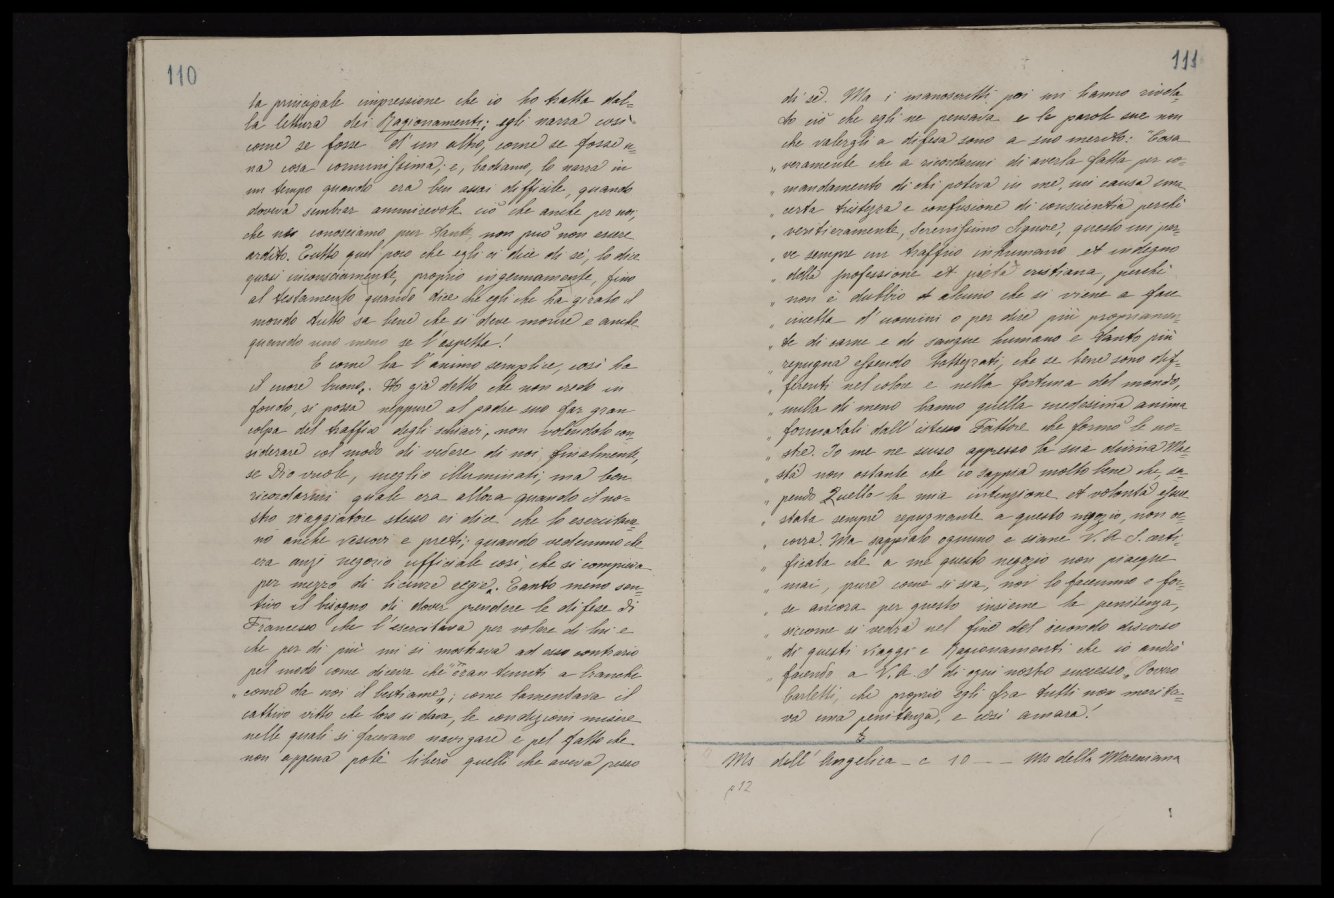 110
la principale impressione che io ho tratta dal=
la lettura dei Ragionamenti; egli narra così
come se fosse d'un altro, come se fosse u=
na cosa comunissima; e, badiamo, lo narra in
un tempo quando era ben assai difficile, quando
doveva sembrar ammirevole ciò che anche per noi,
che noi conosciamo pur tante, non può non essere
ardito. Tutto quel poco che egli ci dice di sé, lo dice
quasi inconsciamente, proprio ingenuamente, fino
al testamento quando dice che egli che ha girato il
mondo tutto sa bene che si deve morire e anche
quando uno meno se l'aspetta!
E come ha l'animo semplice, così ha
il cuore buono. Ho già detto che non credo in
fondo, si possa neppure al padre suo far gran
colpa del traffico degli schiavi, non volendolo con=
siderare col modo di vedere di noi finalmente,
se Dio vuole, meglio illuminati, ma ben
ricordarmi quale era allora quando il no=
stro viaggiatore stesso ci dice che lo esercitava=
no anche vescovi e preti; quando vedemmo che
era anzi negozio ufficiale così, che si compieva
per mezzo di licenze regie. Tanto meno sen=
tivo il bisogno di dover prendere le difese di
Francesco che l'esercitava per volere di lui e
che per di più mi si mostrava ad esso contrario
pel modo come diceva che "eran tenuti a branchi
"come da noi il bestiame"; come lamentava il
cattivo vitto che loro si dava, le condizioni misere
nelle quali si facevano navigare e pel fatto che
non appena poté liberò quelli che aveva presso
111
di sé. Ma i manoscritti poi mi hanno rivela=
to ciò che egli ne pensava e le parole sue non
che valergli a difesa sono a suo merito: "Cosa
"veramente che a ricordarmi di averla fatta per co=
"mandamento di chi poteva in me, mi causa una
"certa tristezza e confusione di conscientia perché
"veritieramente, Serenissimo Signore, questo mi par=
"ve sempre un traffico inhumano et indegno
"della professione et pietà cristiana, perché
"non è dubbio alcuno che si viene a fare
"incetta d'uomini o per dire più propriamen=
"te di carne e di sangue humano e tanto più
"repugna essendo battezzati, che se bene sono dif=
"ferenti nel colore e nella fortuna del mondo,
"nulla di meno hanno quella medesima anima
"formatali dall'istesso Fattore che formò le no=
"stre. Io me ne scuso appresso la sua divina Mae=
"stà non ostante che io sappia molto bene che, sa=
"pendo Quella la mia intenzione et volontà essere
"stata sempre repugnante a questo negozio, non oc=
"corra. Ma sappialo ognuno e siane V. A. S. certi=
"ficata che a me questo negozio non piacque
"mai, pure come si sia, noi lo facemmo e for=
"se ancora per questo insieme la penitenza,
"siccome si vedrà nel fine del secondo discorso
"di questi viaggi e Ragionamenti che io andrò
"facendo a V. A. S. di ogni nostro successo". Povero
Carletti, che proprio egli fra tutti non merita=
va una penitenza, e così amara!
Ms dell'Angelica - c 10 - - Ms della Moreniana
p 12